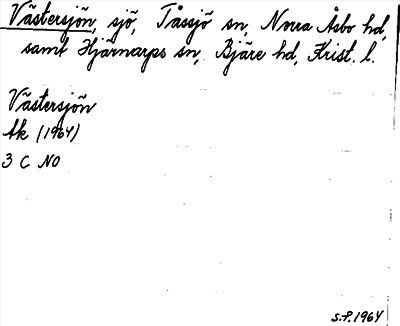 Västersjön, sjö, Tåssjö sn, Norra Åsbo hd,
samt Hjärnarps sn, Bjäre hd, Krist. l.
Västersjön
Ak (1964)
3 C NO
S.P. 1964